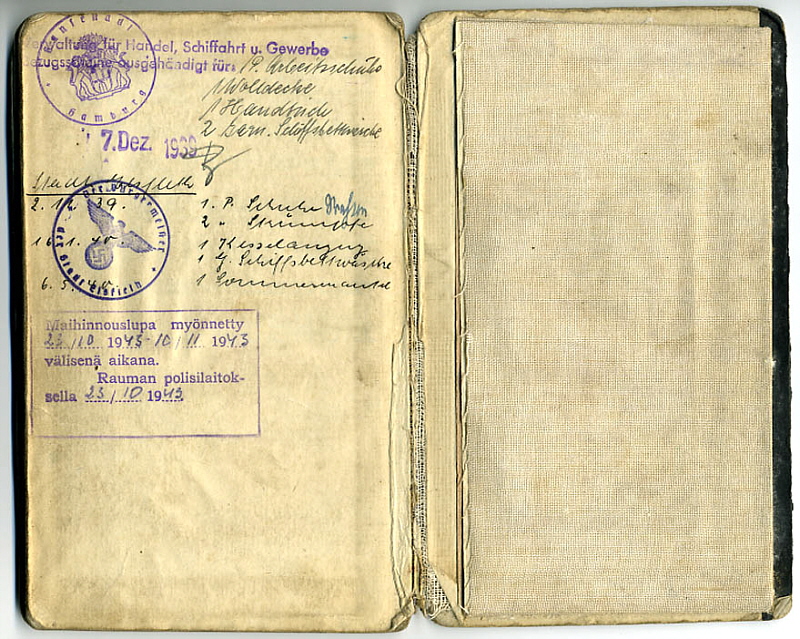 Hansestadt
Hamburg
Verwaltung für Handel, Schiffahrt u. Gewerbe
Bezugsscheine ausgehändigt für: 1 P. Arbeitschuhe
1 Wolldecke
1 Handtuch
2 Garn. Schiffsbettwäsche
7. Dez. 1939
Stadt Elsfleth
Der Bürgermeister
der Stadt Elsfleth
2. 12. 39. 1. P. Schuhe
2 " Strümpfe
16. 1. 40. 1 Kesselanzug
1 G. Schiffsbettwäsche
6. 5. 40. 1 Sommermantel
Maihinnouslupa myönnetty
23/10 1943-10/11 1943
välisenä aikana.
Rauman polisilaitok-
sella 23/10 1943